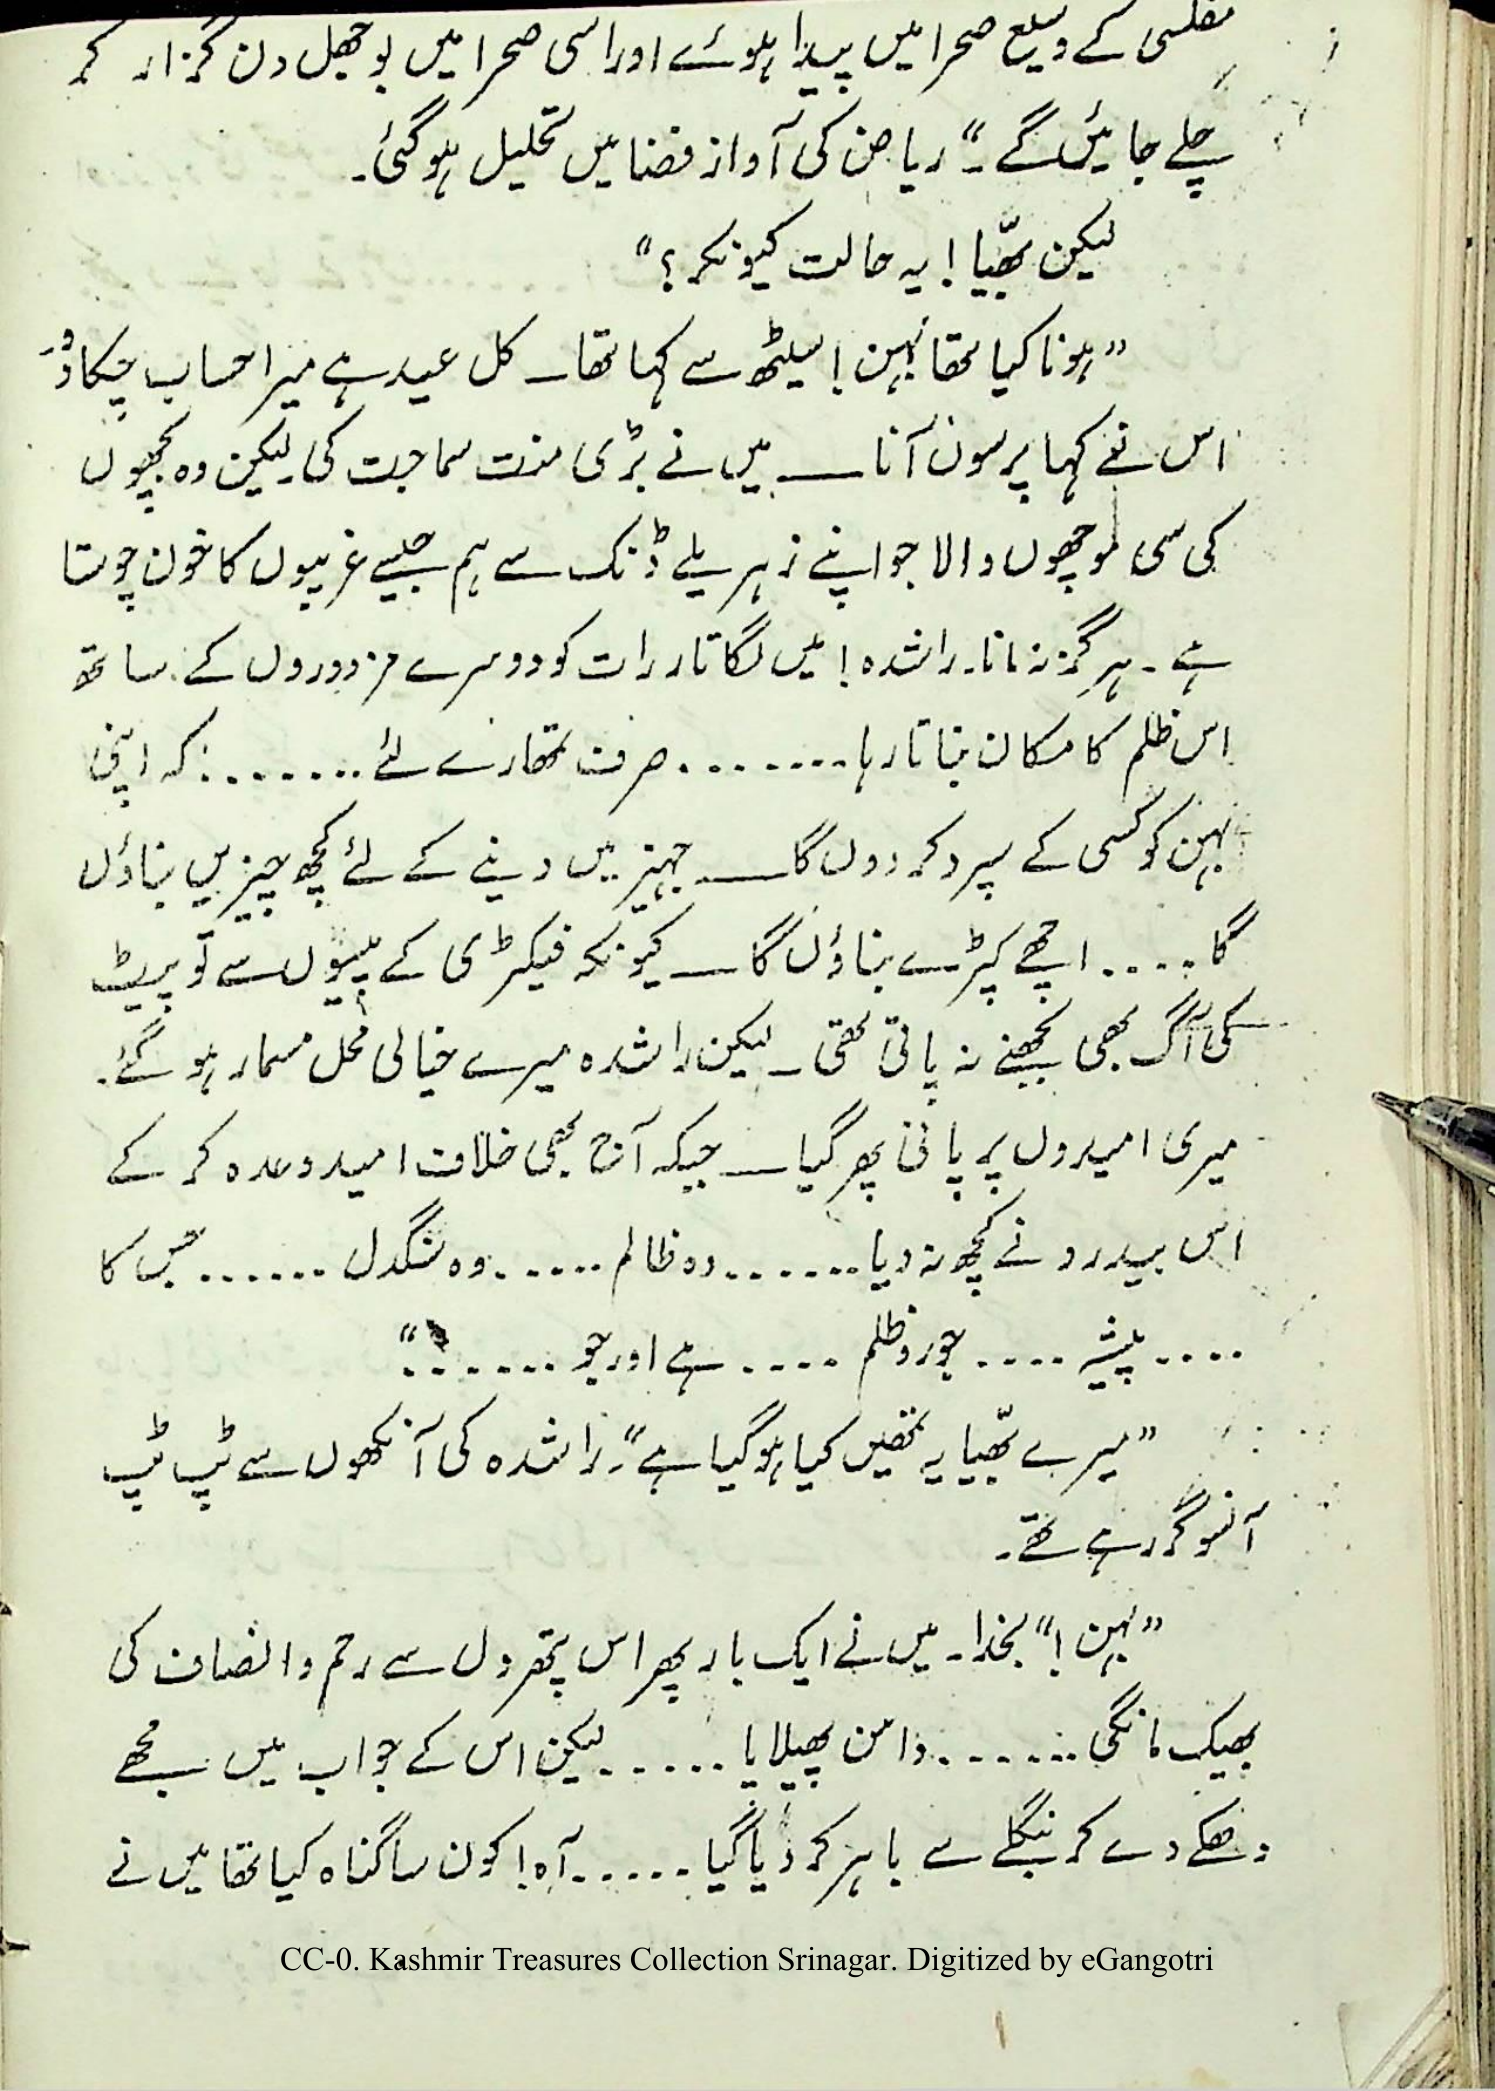 مفلسی کے وسیع صحرا میں پیدا ہوئے اور اسی صحرا میں بوجھل دن گزار کر
چلے جائیں گے۔" ریاض کی آواز فضا میں تحلیل ہو گئی۔
لیکن بھیّا! یہ حالت کیونکر؟"
"ہونا کیا تھا بہن! سیٹھ سے کہا تھا ــ کل عید ہے میرا حساب چکا دُو
اس نے کہا پرسوں آنا ــ میں نے بڑی منت سماجت کی۔ لیکن وہ بچھوں
کی سی موچھوں والا جو اپنے زہریلے ڈنک سے ہم جیسے غریبوں کا خون چوستا
ہے۔ ہرگز نہ مانا۔ راشدہ! میں لگاتار رات کو دوسرے مزدوروں کے ساتھ
اس ظلم کا مکان بناتا رہا ........ صرف تمھارے لئے ....... کہ اپنی
بہن کو کسی کے سپرد کر دوں گا ــ جہیز میں دینے کے لئے کچھ چیزیں بناؤں
گا .... اچھے کپڑے بناؤں گا ــ کیونکہ فیکٹری کے پیسوں سے تو پیٹ
کی آگ بھی بجھنے نہ پاتی تھی ــ لیکن راشدہ میرے خیالی محل مسمار ہو گئے۔
میری امیدوں پر پانی پھر گیا ــ جبکہ آج بھی خلاف امید وعدہ کر کے
اس بیدرد نے کچھ نہ دیا ....... وہ ظالم ..... وہ سنگدل ...... جس کا
.... پیشہ .... جور و ظلم .... ہے اور جو ......"
"میرے بھیّا یہ تمھیں کیا ہو گیا ہے"۔ راشدہ کی آنکھوں سے ٹپ ٹپ
آنسو گر رہے تھے۔
"بہن!" بخدا۔ میں نے ایک بار پھر اس پتھر دل سے رحم و انصاف کی
بھیک مانگی ....... دامن پھیلایا ..... لیکن اس کے جواب میں مجھے
دھکے دے کر بنگلے سے باہر کر دیا گیا ..... آہ! کون سا گناہ کیا تھا میں نے
CC-0. Kashmir Treasures Collection Srinagar. Digitized by eGangotri